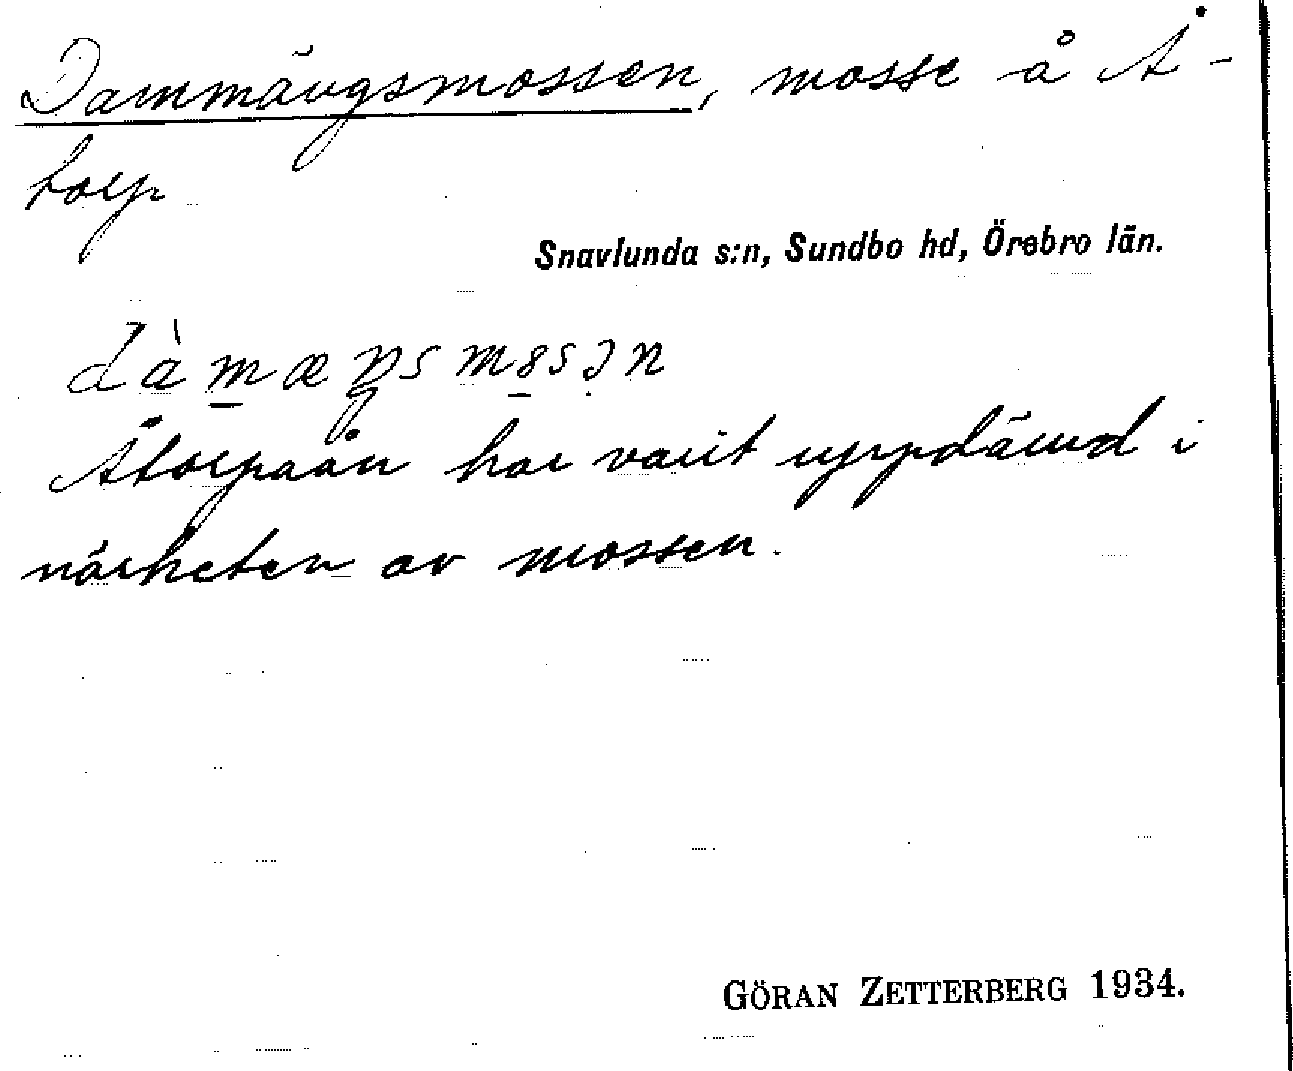 Dammängsmossen, mosse å Å-
torp
Snavlunda s:n, Sundbo hd, Örebro län.
dàmæŋsm8sɔn
Åtorpaån har varit uppdämd i
närheten av mossen.
GÖRAN ZETTERBERG 1934.